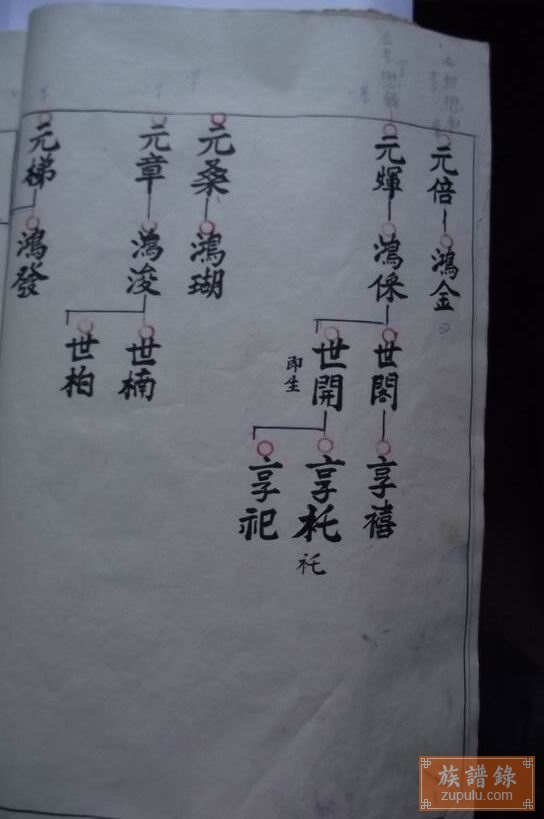 元倍
鴻金
元煇
鴻保
世閣
享禧
世開
即生
享杔
祄
享祀
元桑
鴻瑚
元章
鴻浚
世楠
世柏
元梯
鴻發
族譜錄
zupulu.com